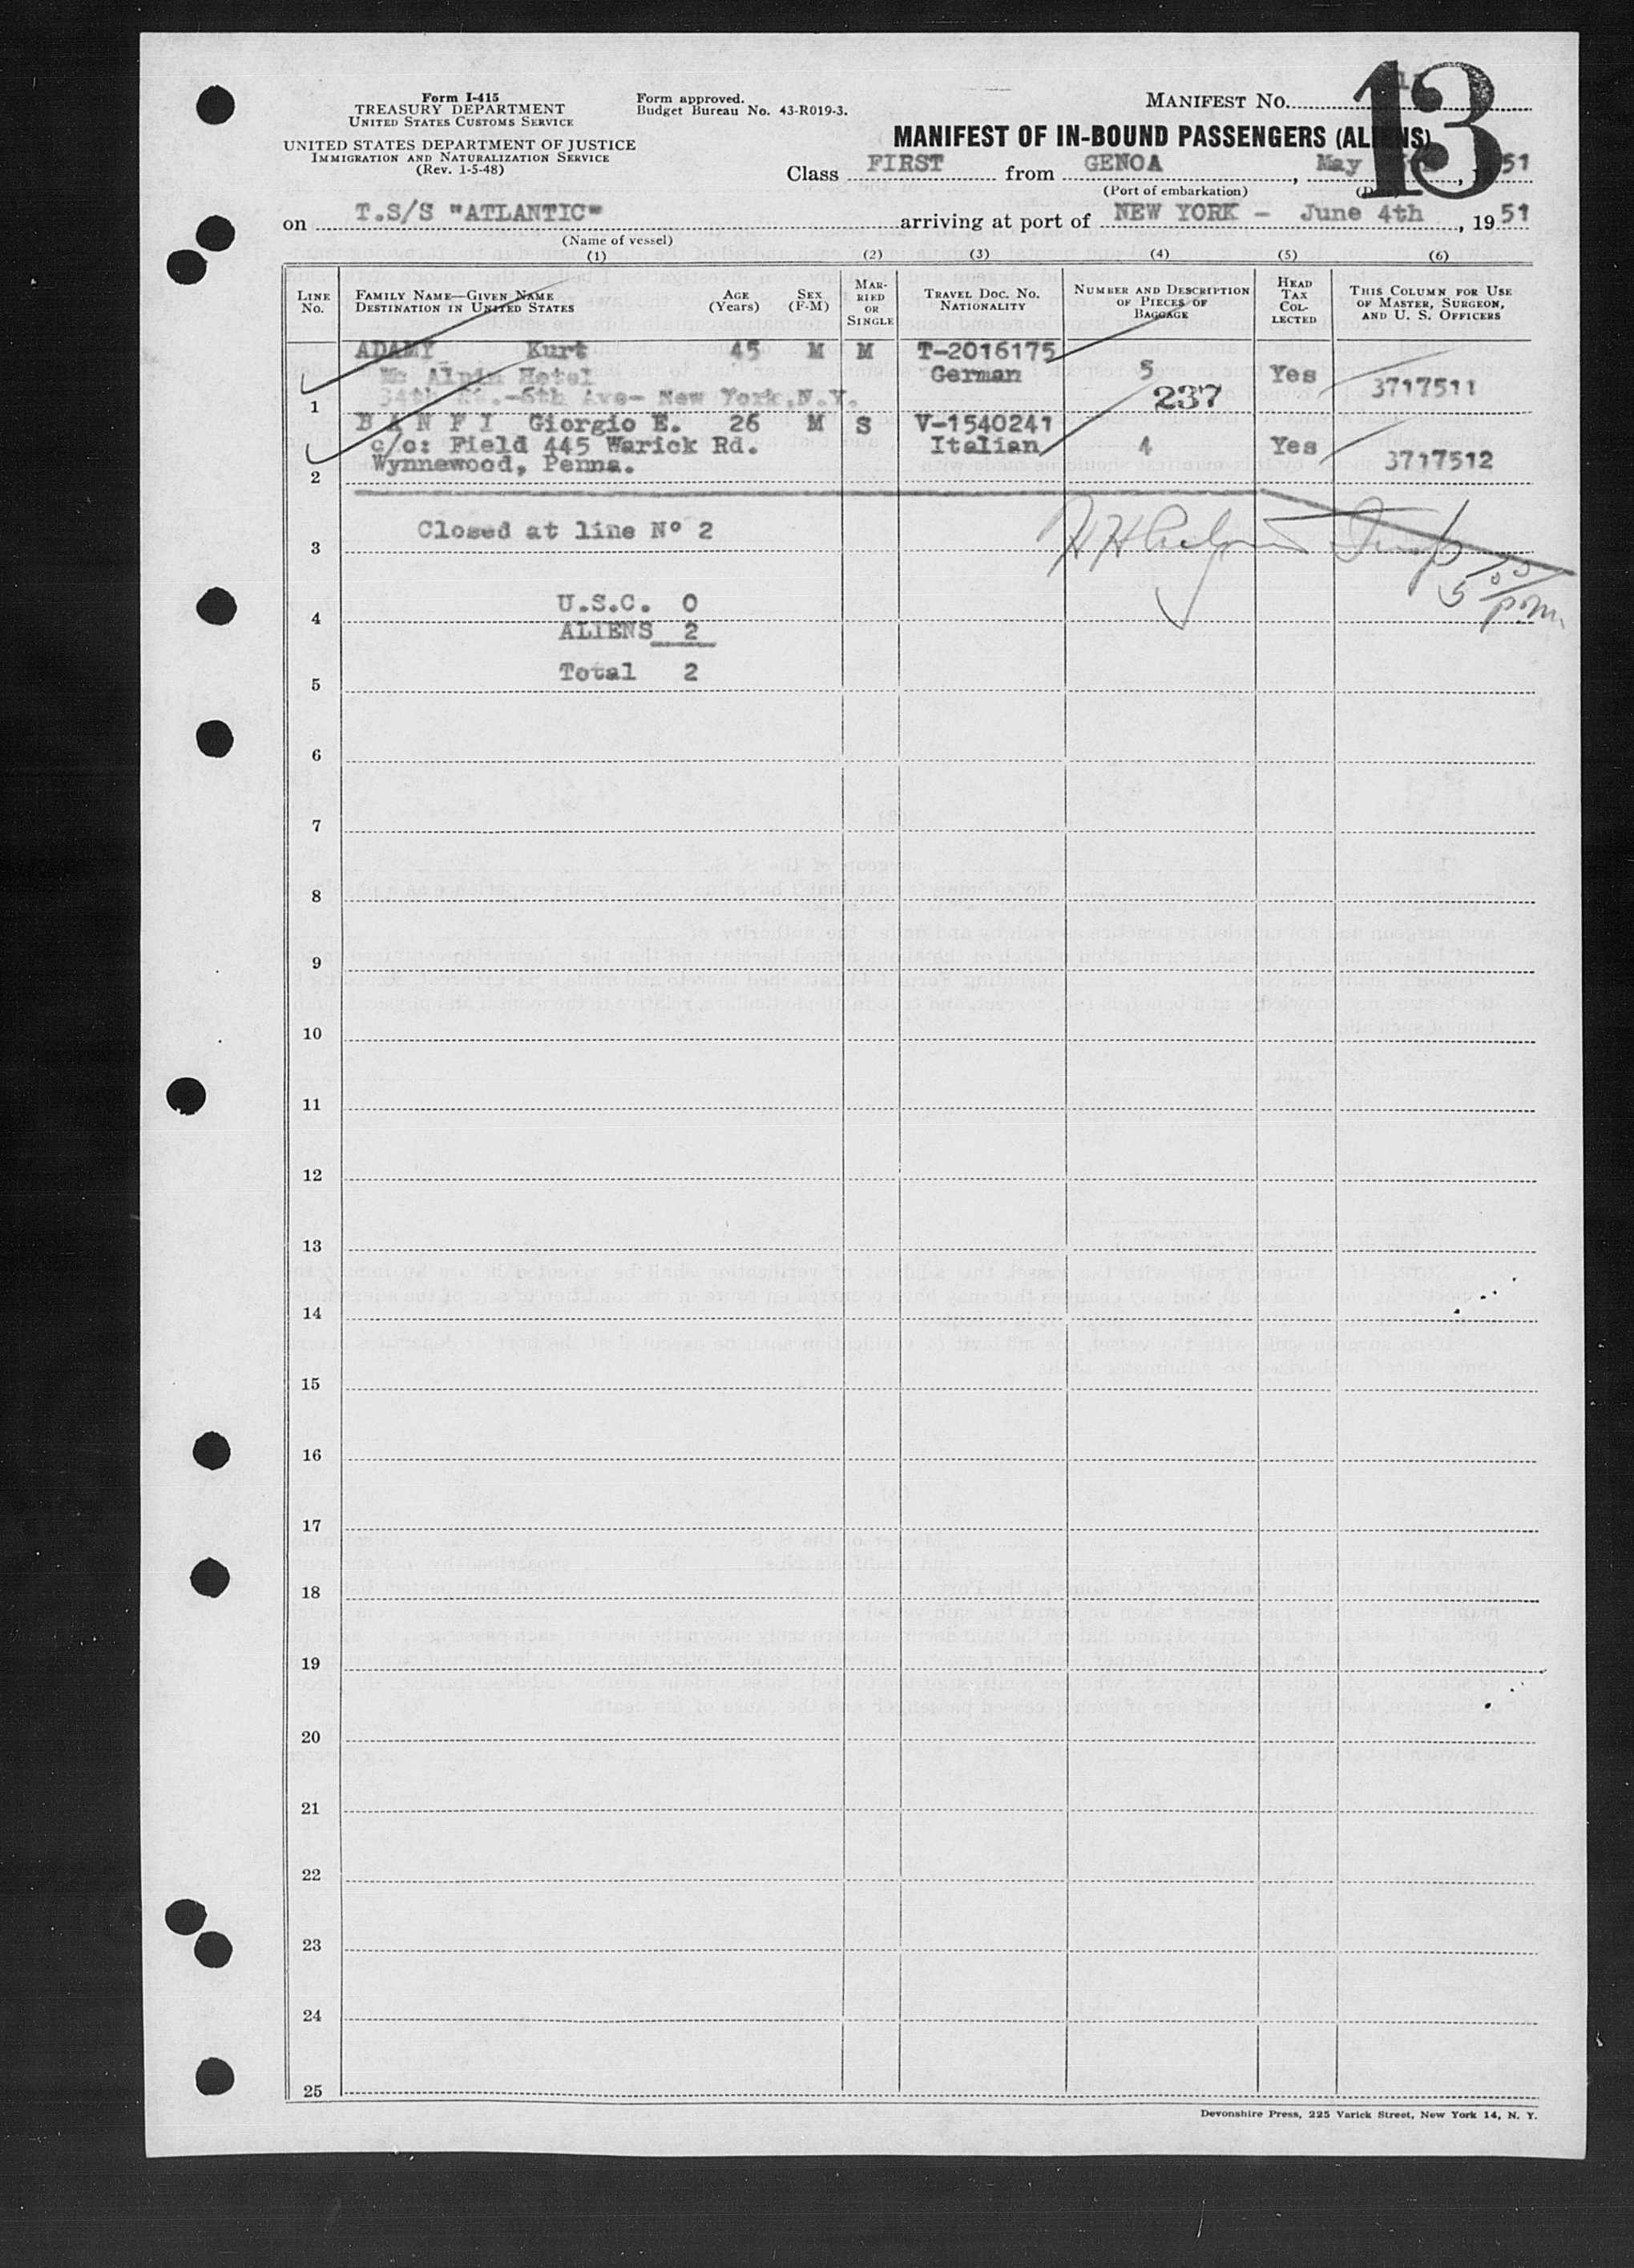 Form I-415
TREASURY DEPARTMENT
UNITED STATES CUSTOMS SERVICE
UNITED STATES DEPARTMENT OF JUSTICE
IMMIGRATION AND NATURALIZATION SERVICE
(Rev. 1-5-48)
Form approved.
Budget Bureau No. 43-R019-3.
MANIFEST NO.
13
MANIFEST OF IN-BOUND PASSENGERS (ALIENS)
Class FIRST from GENOA, May 51
(Port of embarkation)
on T.S/S "ATLANTIC" arriving at port of NEW YORK - June 4th, 1951
(Name of vessel)
(1) (2) (3) (4) (5) (6)
LINE NO. FAMILY NAME—GIVEN NAME DESTINATION IN UNITED STATES AGE (Years) SEX (F-M) MARRIED OR SINGLE TRAVEL DOC. NO. NATIONALITY NUMBER AND DESCRIPTION OF PIECES OF BAGGAGE HEAD TAX COLLECTED THIS COLUMN FOR USE OF MASTER, SURGEON, AND U. S. OFFICERS
ADAMY Kurt 45 M M T-2016175
Mc Alpin Hotel German 5 Yes 3717511
1 34th St.-6th Ave- New York,N.Y. 237
B A N F I Giorgio E. 26 M S V-1540241
c/o: Field 445 Warick Rd. Italian 4 Yes 3717512
2 Wynnewood, Penna.
Closed at line Nº 2
3
5 00 p.m.
U.S.C. 0
4
ALIENS 2
Total 2
5
6
7
8
9
10
11
12
13
14
15
16
17
18
19
20
21
22
23
24
25
Devonshire Press, 225 Varick Street, New York 14, N. Y.